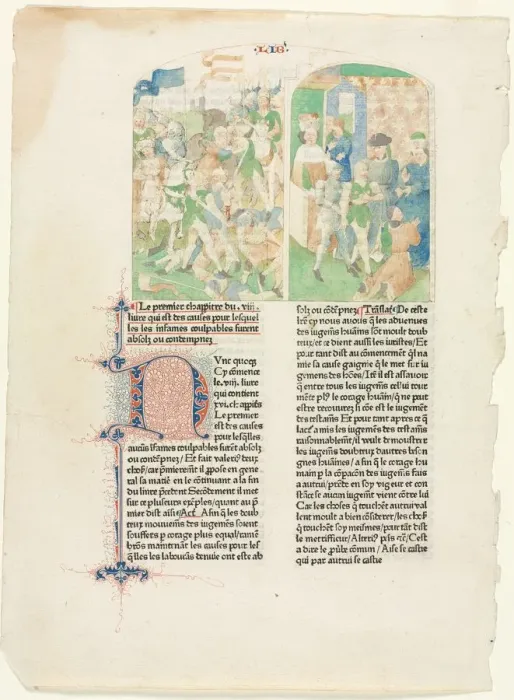 ·L·I·B·
Le premier chappitre du .viii.
livre qui est des causes pour lesquel
les les infames coulpables furent
absolz ou contempnez
Vnc quocq
Cy cōmence
le .viii. livre
qui contient
xvi. ch̄appit̄s
Le premier
est des causes
pour lesq̄lles
aucūs īfames coulpables furēt absolz
ou condēpnez / Et fait valere / deux
choses / car p̄mieremēt il ppose en gene
ral sa matiē en le cōtinuant a la fin
du livre p̄cedent Secōdement il met
sur ce plusieurs exēples / quant au p̄
mier dist aīsi Afin q̄ les doub
teux mouvemēs des iugemēs soient
soufferts p corage plus equal / ramē
brōs maintenāt les causes pour lesq̄
q̄lles les labourās denvie ont este ab
solz ou cōdēpnez Trāslat̄ De ceste
lr̄e cy nous avons q̄ les advenues
des iugemēs huāins sōt moult doub
teux / et ce dient aussi les iuristes / Et
pour tant dist au cōmencement q̄l na
mis sa cause gaigne q̄ le met sur iu
gemens des hōes / Itē il est assavoir
q̄ entre tous les iugemēs celluī tour
mēte pl⁹ le corage humāī / q̄ ne peut
estre recouvrez si cōe est le iugement
des testamēs Et pour tant apres ce q̄
lacē a mis les iugemēs des testamēs
raisonnablemēt / il veult demoustrer
les iugemēs doubteux dautres beso
gnes huāines / a fin q̄ le corage hu
main p la cōpacōn des iugemēs fais
a autrui / prēde en soy vigeur et con
stāce se aucun iugemēt vient cōtre lui
Car les choses q̄ touchēt autrui val
lent moult a bien cōsiderer / les chos̄
q̄ touchēt soy mesmes / pour tāt dist
le mettrifficur / Cest
a dire le pūble cōmun / Aise se castie
qui par autrui se castie